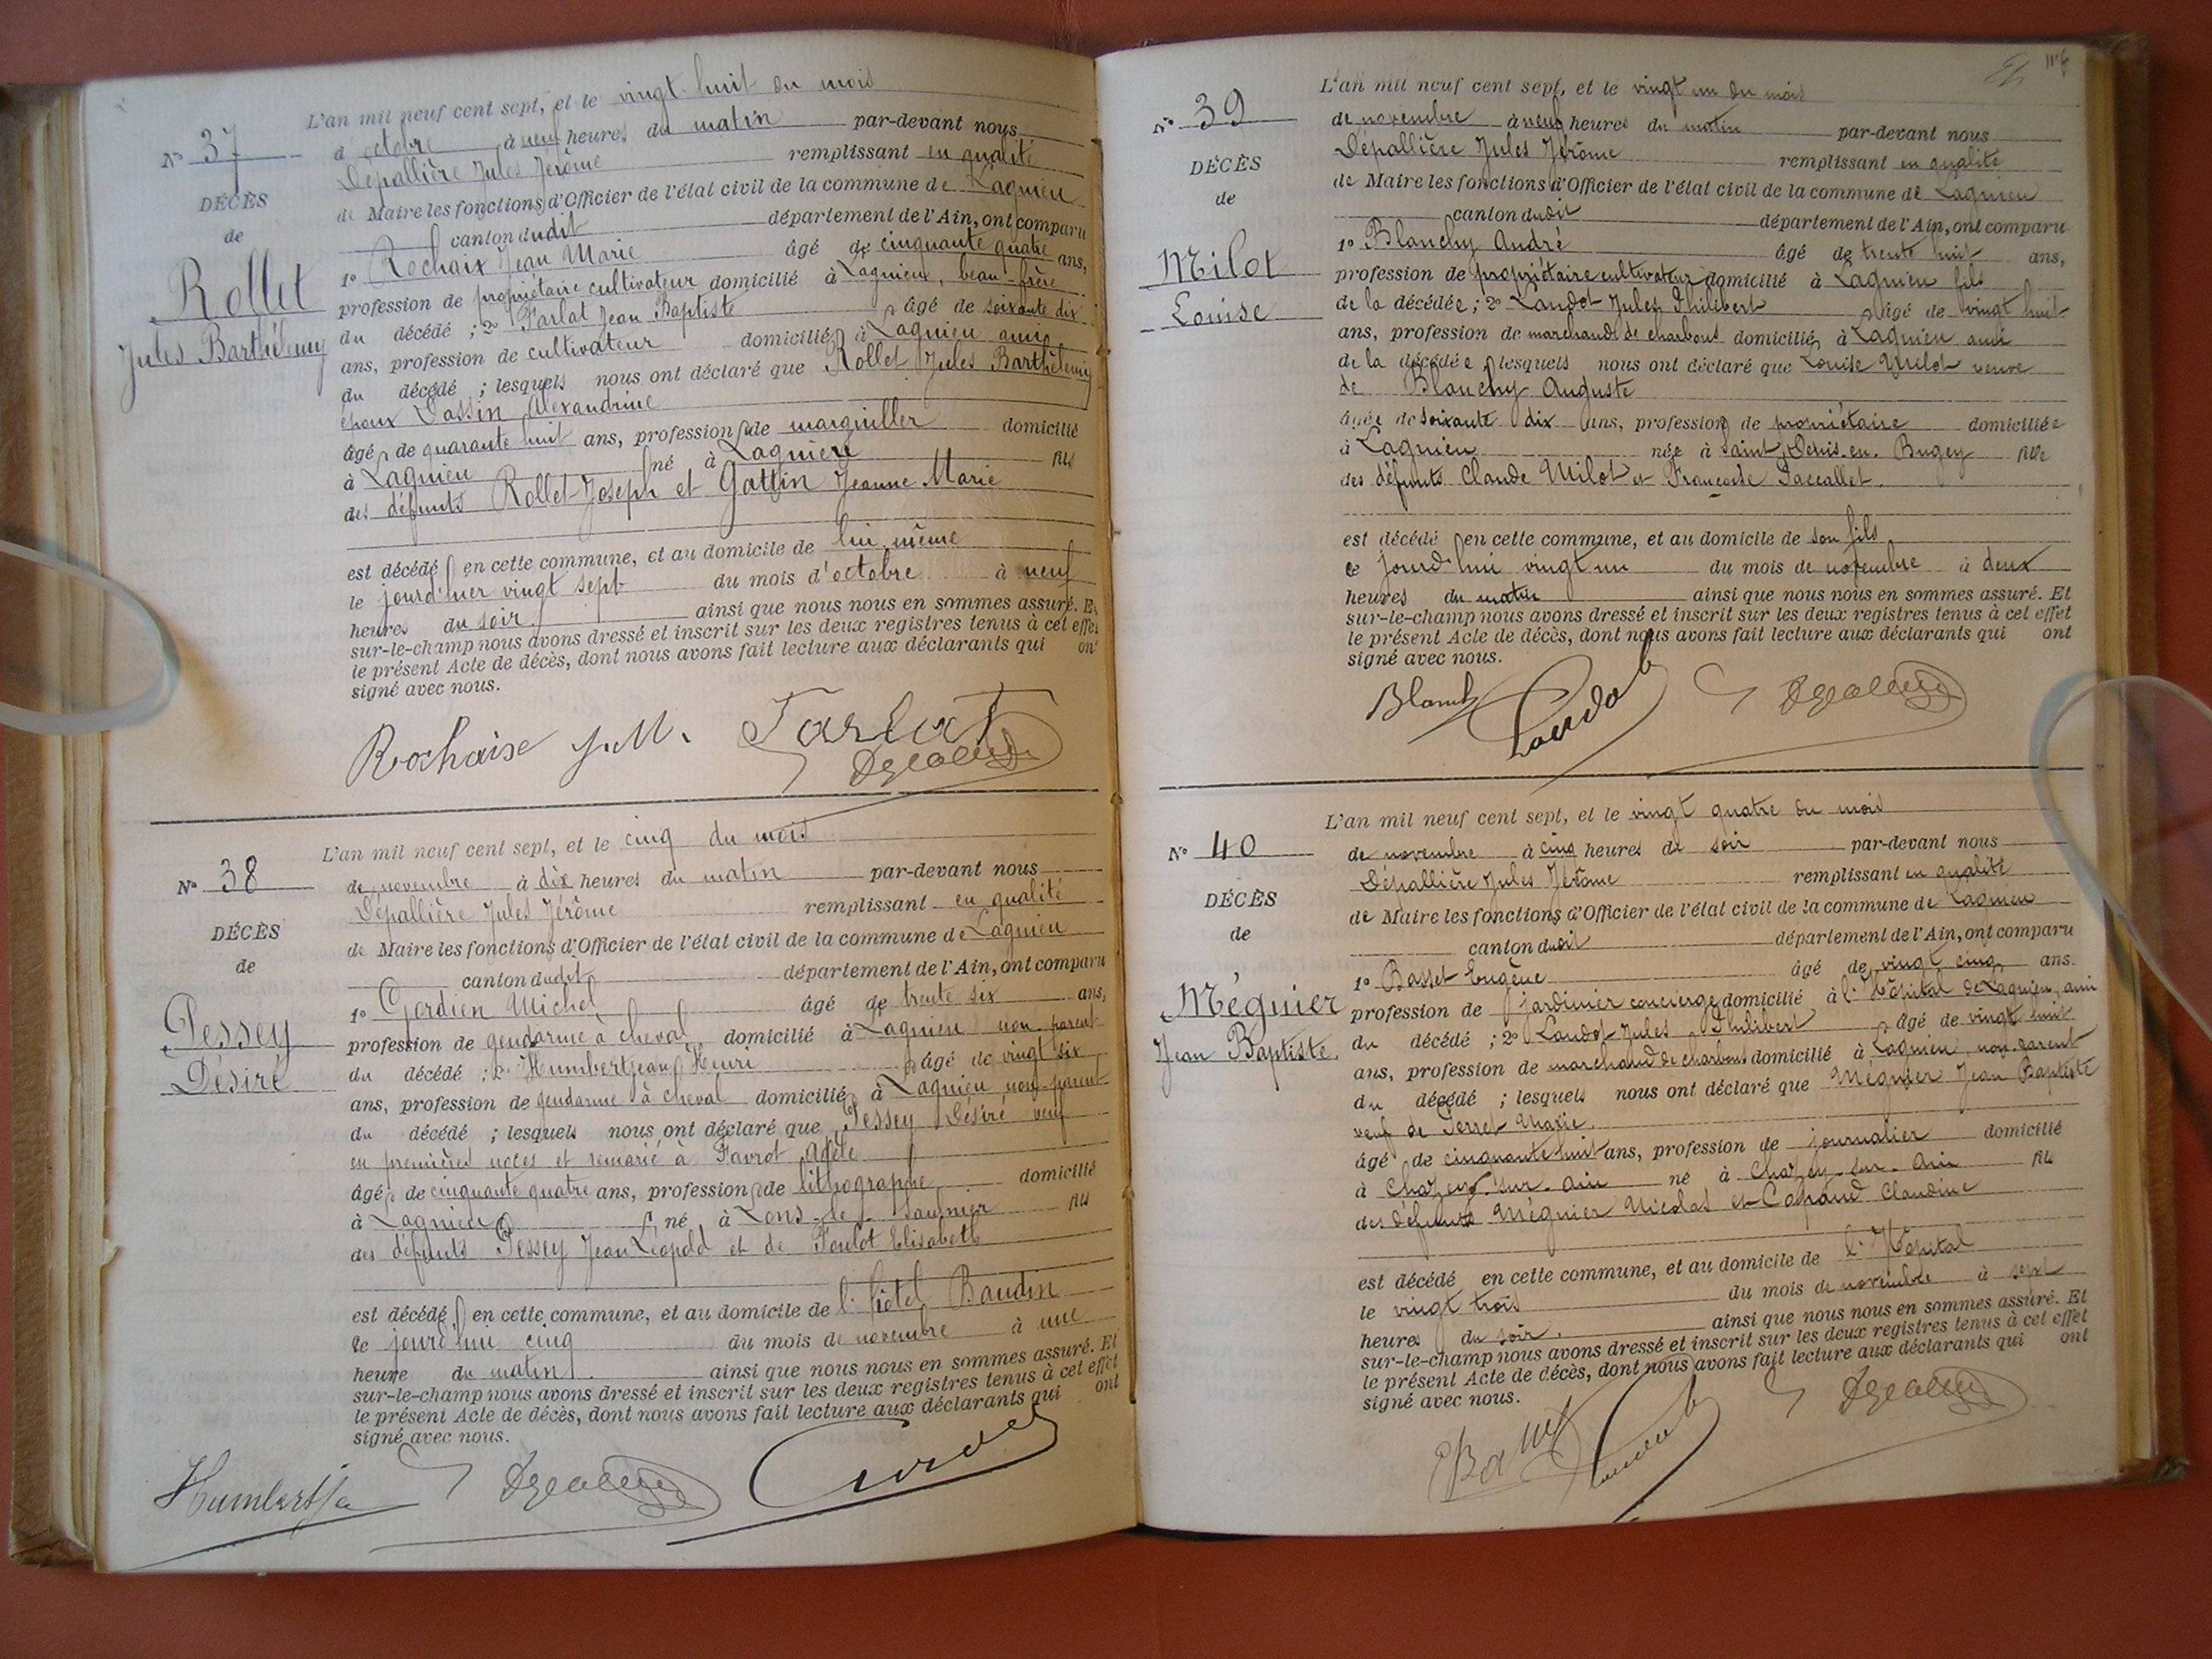 N° 37
DÉCÈS
de
Rollet
Jules Barthélemy
L'an mil neuf cent sept, et le vingt huit du mois
d'octobre à neuf heures du matin par-devant nous
Dépallière Jules Jérôme remplissant en qualité
de Maire les fonctions d'Officier de l'état civil de la commune de Lagnieu
canton dudit département de l'Ain, ont comparu
1° Rochaix Jean Marie âgé de cinquante quatre ans,
profession de propriétaire cultivateur domicilié à Lagnieu, beau-frère
du décédé ; 2° Tarlat Jean Baptiste âgé de soixante dix
ans, profession de cultivateur domicilié à Lagnieu ami
du décédé ; lesquels nous ont déclaré que Rollet Jules Barthélemy
époux Dassin Alexandrine
âgé de quarante huit ans, profession de marguiller domicilié
à Lagnieu né à Lagnieu fils
des défunts Rollet Joseph et Gottin Jeanne Marie
est décédé en cette commune, et au domicile de lui même
le jourd'hier vingt sept du mois d'octobre à neuf
heures du soir ainsi que nous nous en sommes assuré. Et
sur-le-champ nous avons dressé et inscrit sur les deux registres tenus à cet effet
le présent Acte de décès, dont nous avons fait lecture aux déclarants qui ont
signé avec nous.
Rochaise J.M. Tarlat
N° 38
DÉCÈS
de
Pessey
Désiré
L'an mil neuf cent sept, et le cinq du mois
de novembre à dix heures du matin par-devant nous
Dépallière Jules Jérôme remplissant en qualité
de Maire les fonctions d'Officier de l'état civil de la commune de Lagnieu
canton dudit département de l'Ain, ont comparu
1° Gordien Michel âgé de trente six ans,
profession de gendarme à cheval domicilié à Lagnieu non parent
du décédé ; 2° Humbert Jean Henri âgé de vingt six
ans, profession de gendarme à cheval domicilié à Lagnieu non parent
du décédé ; lesquels nous ont déclaré que Pessey Désiré veuf
en premières noces et remarié à Favrot Adèle
âgé de cinquante quatre ans, profession de lithographe domicilié
à Lagnieu né à Lons-le-Saunier fils
des défunts Pessey Jean Léopold et de Poulot Elisabeth
est décédé en cette commune, et au domicile de l'hôtel Baudin
le jourd'hui cinq du mois de novembre à une
heure du matin ainsi que nous nous en sommes assuré. Et
sur-le-champ nous avons dressé et inscrit sur les deux registres tenus à cet effet
le présent Acte de décès, dont nous avons fait lecture aux déclarants qui ont
signé avec nous.
N° 39
DÉCÈS
de
Milot
Louise
L'an mil neuf cent sept, et le vingt un du mois
de novembre à neuf heures du matin par-devant nous
Dépallière Jules Jérôme remplissant en qualité
de Maire les fonctions d'Officier de l'état civil de la commune de Lagnieu
canton dudit département de l'Ain, ont comparu
1° Blanchy André âgé de trente huit ans,
profession de propriétaire cultivateur domicilié à Lagnieu fils
de la décédée ; 2° Landot Jules Philibert âgé de vingt huit
ans, profession de marchand de charbons domicilié à Lagnieu ami
de la décédée lesquels nous ont déclaré que Louise Milot veuve
de Blanchy Auguste
âgée de soixante dix ans, profession de propriétaire domiciliée
à Lagnieu née à Saint Denis-en-Bugey fille
des défunts Claude Milot et Françoise Paccallet.
est décédé en cette commune, et au domicile de son fils
le jourd'hui vingt un du mois de novembre à deux
heures du matin ainsi que nous nous en sommes assuré. Et
sur-le-champ nous avons dressé et inscrit sur les deux registres tenus à cet effet
le présent Acte de décès, dont nous avons fait lecture aux déclarants qui ont
signé avec nous.
N° 40
DÉCÈS
de
Mégnier
Jean Baptiste
L'an mil neuf cent sept, et le vingt quatre du mois
de novembre à cinq heures du soir par-devant nous
Dépallière Jules Jérôme remplissant en qualité
de Maire les fonctions d'Officier de l'état civil de la commune de Lagnieu
canton dudit département de l'Ain, ont comparu
1° Basset Eugène âgé de vingt cinq ans.
profession de jardinier concierge domicilié à l'Hôpital de Lagnieu, ami
du décédé ; 2° Landot Jules Philibert âgé de vingt huit
ans, profession de marchand de charbons domicilié à Lagnieu, non parent
du décédé ; lesquels nous ont déclaré que Mégnier Jean Baptiste
veuf de Perret Marie.
âgé de cinquante huit ans, profession de journalier domicilié
à Chazey-sur-Ain né à Chazey-sur-Ain fils
des défunts Mégnier Nicolas et Claudine
est décédé en cette commune, et au domicile de l'Hôpital
le vingt trois du mois de novembre à sept
heures du soir. ainsi que nous nous en sommes assuré. Et
sur-le-champ nous avons dressé et inscrit sur les deux registres tenus à cet effet
le présent Acte de décès, dont nous avons fait lecture aux déclarants qui ont
signé avec nous.